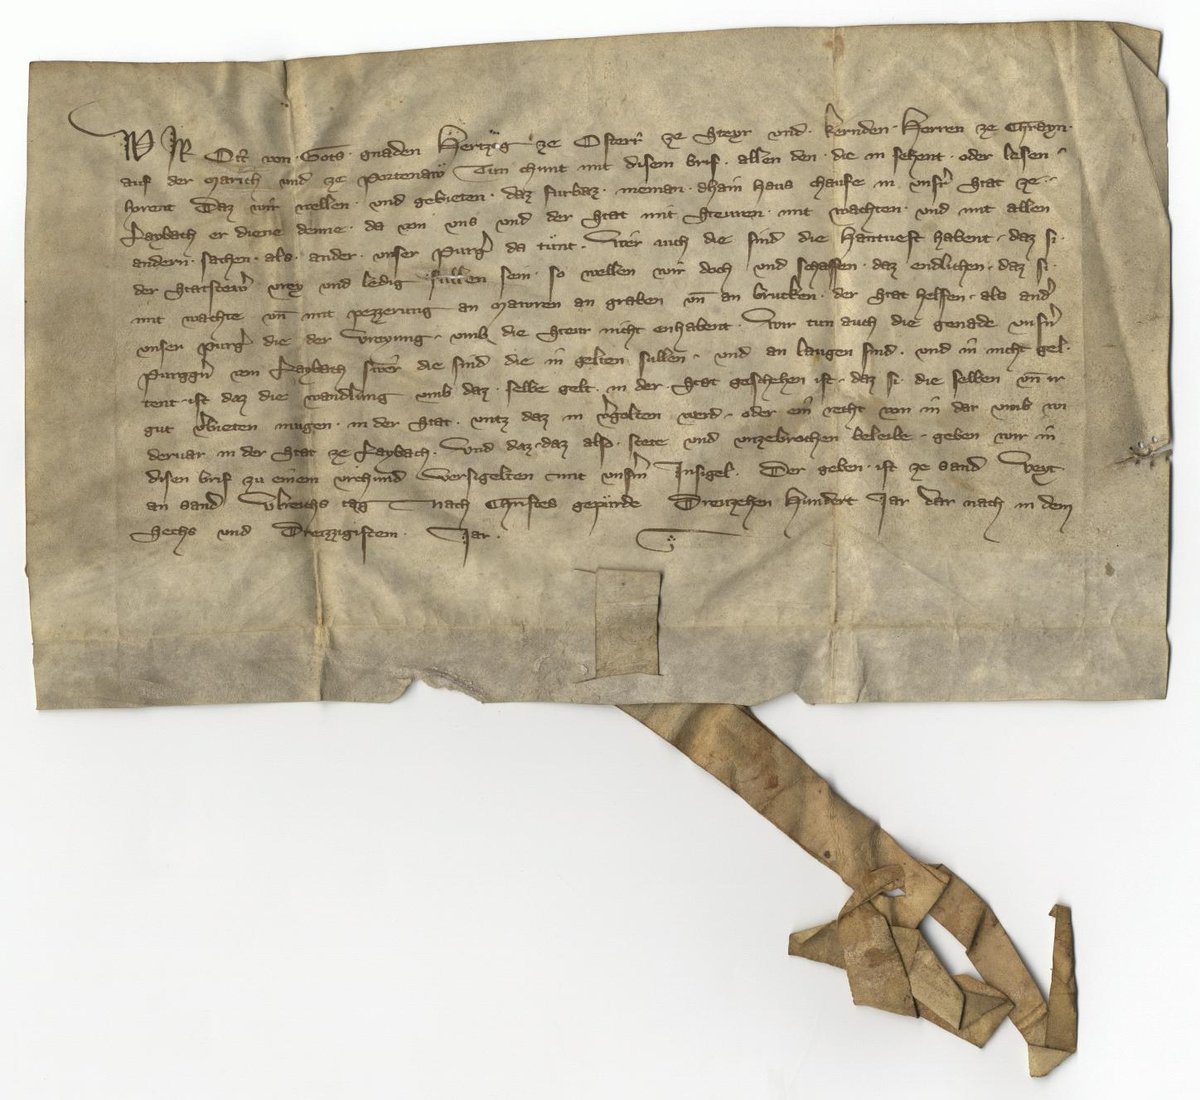 WIR Ott von Gots gnaden Hertzog ze Osterr ze Steyr vnd kernden Herren ze Chrayn
auf der Marich vnd ze Portenaw Tun chunt mit disem brif allen den die in sehent oder lesen
horent Daz wir wellen vnd gebieten daz furbaz nieman dhain haus chaufe in vnsr Stat ze
Laybach er diene denne da von vns vnd der Stat mit Steuren mit wachten vnd mit allen
andern sachen als ander vnser Purgr da tunt Wer auch die sind die Hantuest habent daz si
der Statstewr vrey vnd ledig sullen sein so wellen wir doch vnd schaffen daz endlichen daz si
mit wachte vn mit pezzerung an Mauren an graben vn an brukken der Stat helfen als andr
vnser purgr die der vreyung vmb die Steur nicht enhabent Wir tun auch die genade vnsrn
Purggrn von Laybach swer die sind die in gelten sullen vnd an laugen sind vnd in nicht gel
tent ist daz die wandlung vmb daz selbe gelt in der Stat geschehen ist daz si die selben vn ir
gut vbieten mugen in der Stat vntz daz in vgolten werd oder ein recht von in dar vmb wi
deruar in der Stat ze Laybach Vnd daz daz also stete vnd vnzebrochen beleibe geben wir in
disen brif zu einem vrchund versigelten mit vnsrm Insigel Der geben ist ze sand Veyt
an sand Vlreichs tag Nach Christes gepurde Dreuzehen Hundert Jar dar nach in dem
Sechs vnd Dreizzigistem Jar